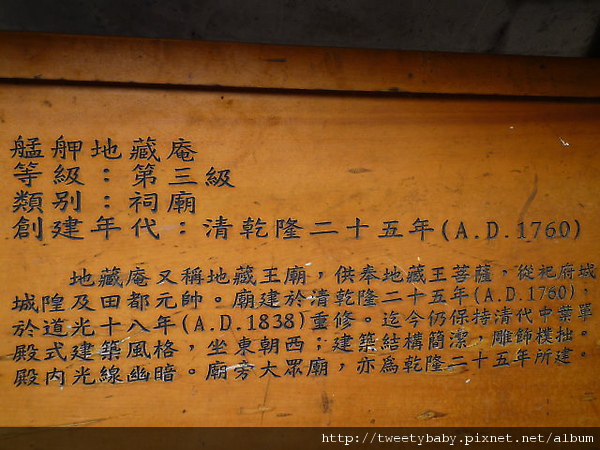 艋舺地藏庵
等級：第三級
類別：祠廟
創建年代：清乾隆二十五年(A.D.1760)
地藏庵又稱地藏王廟，供奉地藏王菩薩，從祀府城
城隍及田都元帥。廟建於清乾隆二十五年(A.D.1760)，
於道光十八年(A.D.1838)重修。迄今仍保持清代中葉單
殿式建築風格，坐東朝西；建築結構簡潔，雕飾樸拙。
殿內光線幽暗。廟旁大眾廟，亦為乾隆二十五年所建。
http://tweetybaby.pixnet.net/album